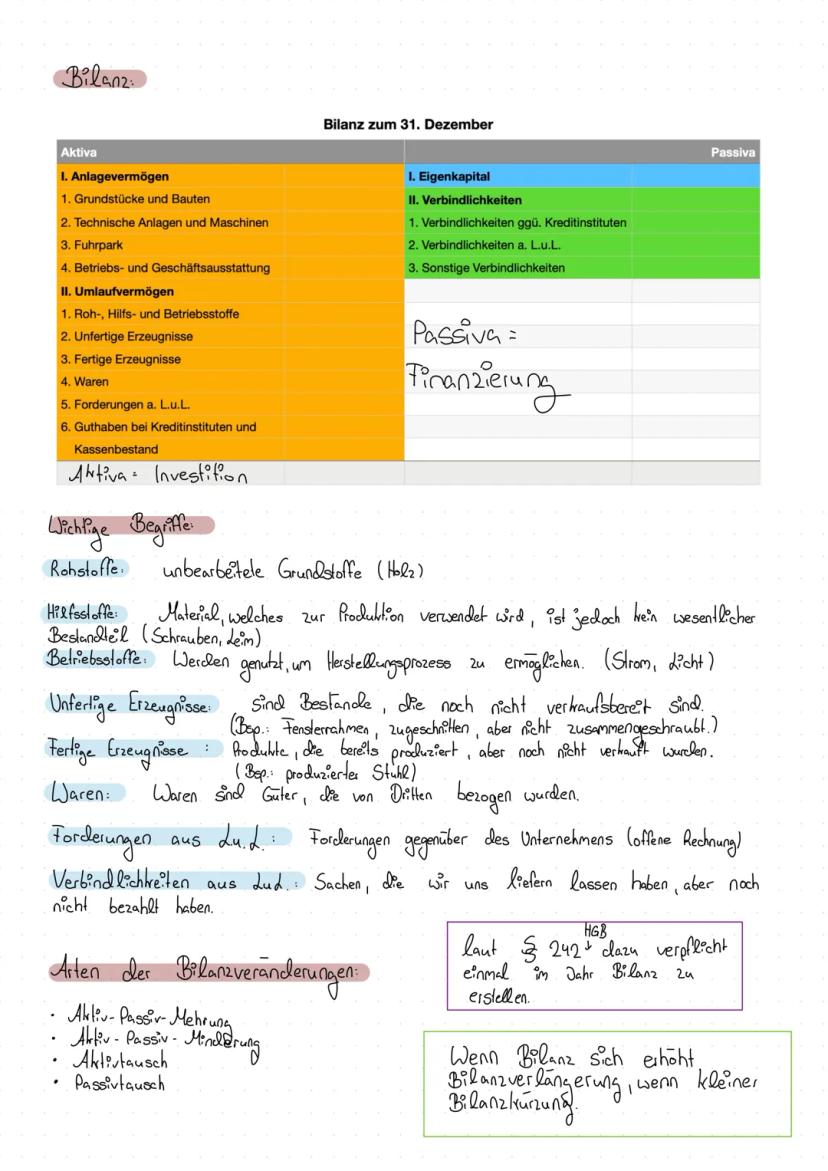 Bilanz:
Bilanz zum 31. Dezember
Aktiva Passiva
I. Anlagevermögen
1. Grundstücke und Bauten
2. Technische Anlagen und Maschinen
3. Fuhrpark
4. Betriebs- und Geschäftsausstattung
II. Umlaufvermögen
1. Roh-, Hilfs- und Betriebsstoffe
2. Unfertige Erzeugnisse
3. Fertige Erzeugnisse
4. Waren
5. Forderungen a. L.u.L.
6. Guthaben bei Kreditinstituten und
Kassenbestand
Aktiva = Investition
I. Eigenkapital
II. Verbindlichkeiten
1. Verbindlichkeiten ggü. Kreditinstituten
2. Verbindlichkeiten a. L.u.L.
3. Sonstige Verbindlichkeiten
Passiva =
Finanzierung
Wichtige Begriffe:
Rohstoffe: unbearbeitete Grundstoffe (Holz)
Hilfsstoffe: Material, welches zur Produktion verwendet wird, ist jedoch kein wesentlicher
Bestandteil (Schrauben, Leim)
Betriebsstoffe: Werden genutzt, um Herstellungsprozess zu ermöglichen. (Strom, Licht)
Unfertige Erzeugnisse: sind Bestände, die noch nicht verkaufsbereit sind.
(Bsp.: Fensterrahmen, zugeschnitten, aber nicht zusammengeschraubt.)
Fertige Erzeugnisse : Produkte, die bereits produziert, aber noch nicht verkauft wurden.
(Bsp.: produzierter Stuhl)
Waren: Waren sind Güter, die von Dritten bezogen wurden.
Forderungen aus L.u.L. : Forderungen gegenüber des Unternehmens (offene Rechnung)
Verbindlichkeiten aus LuL : Sachen, die wir uns liefern lassen haben, aber noch
nicht bezahlt haben.
Arten der Bilanzveränderungen:
• Aktiv-Passiv-Mehrung
• Aktiv-Passiv-Minderung
• Aktivtausch
• Passivtausch
HGB
laut § 242↓ dazu verpflicht
einmal im Jahr Bilanz zu
erstellen.
Wenn Bilanz sich erhöht
Bilanzverlängerung, wenn kleiner
Bilanzkürzung.